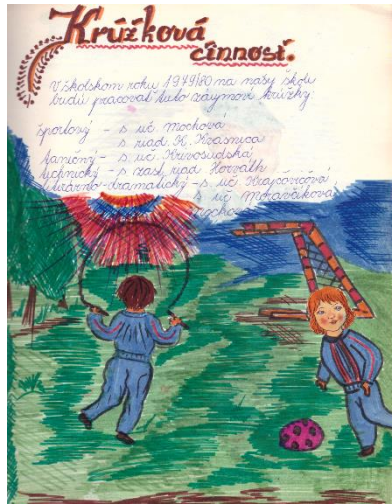 Krúžková
činnosť.
V školskom roku 1979/80 na našej škole
budú pracovať tieto záujmové krúžky:
športový - s. uč. Mochová
s. riad. H. Krasnica
tanečný - s. uč. Krivosudská
technický - s. zást. riad. Horváth
literárno-dramatický - s. uč. Krajčovičová
s. uč. Moravčíková